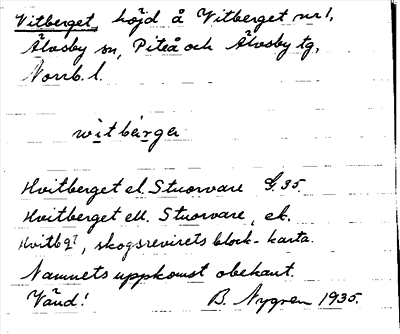 Vitberget, höjd å Vitberget nr 1,
Älvsby sn, Piteå och Älvsby tg,
Norrb. l.
witbärger
Hvitberget el. Stuorvare G. 35.
Hvitberget ell. Stuorvare, ek.
Hvitbgt, skogsrevirets block-karta.
Namnets uppkomst obekant.
Vänd! B. Nygren 1935.